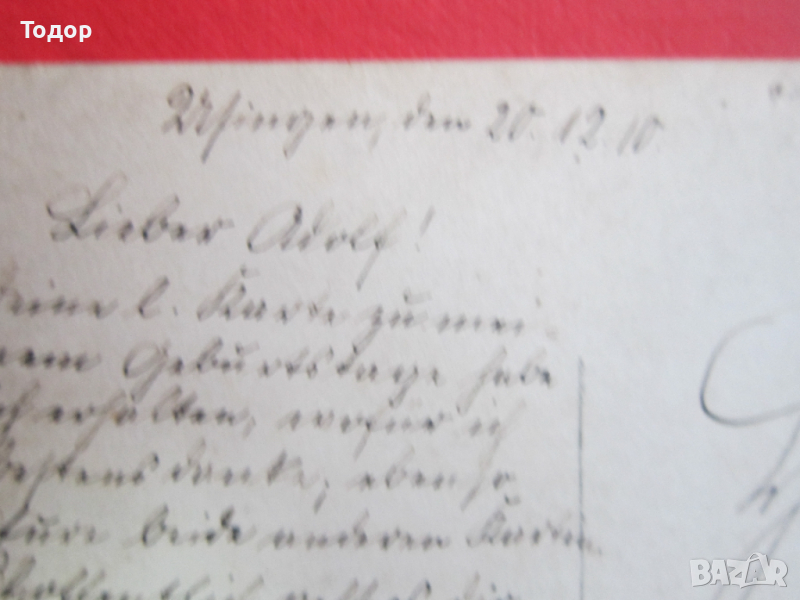 Todor
Usingen, den 20.12.10.
Lieber Adolf!
Deine l. Karte zu mei-
nem Geburtstage habe
ich erhalten, wofür ich
bestens danke; ebenso
für beide anderen Karten.
Hoffentlich
BAZAR